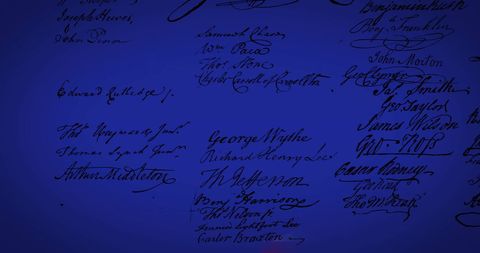 Joseph Hewes,
John Penn
Edward Rutledge /.
Thos Heyward Junr.
Thomas Lynch Junr.
Arthur Middleton
Samuel Chase
Wm Paca
Thos Stone
Charles Carroll of Carrollton
George Wythe
Richard Henry Lee
Th Jefferson
Benj Harrison
Thos Nelson jr
Francis Lightfoot Lee
Carter Braxton
Benjamin Rush
Benj Franklin
John Morton
Geo Clymer
Jas Smith
Geo Taylor
James Wilson
Geo Ross
Caesar Rodney
Geo Read
Tho M:Kean